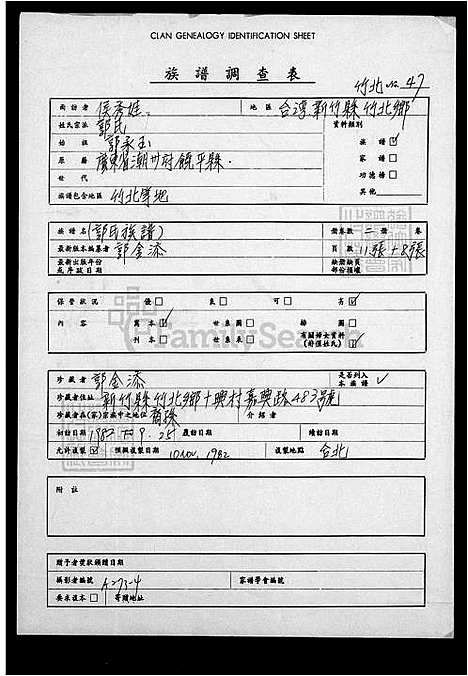 CLAN GENEALOGY IDENTIFICATION SHEET
族譜調查表
竹北 no. 47
面訪者 侯秀娃 地區 台灣新竹縣竹北鄉
姓氏宗派 郭氏 資料類別
始祖 郭承玉 族譜 ☑
原籍 廣東省潮州府饒平縣. 家譜 □
世代 功德榜 □
族譜包含地區 竹北等地 其他
族譜名 (郭氏族譜) 冊卷數 二冊 卷
最新版本編纂者 郭金添 頁數 11張+8張
最新出版年份 缺冊缺頁
或序跋日期 部份損壞
保管狀況 優 □ 良 □ 可 □ 劣 ☑
內容 寫本 ☑ 世系圖 □ 繪圖 □ 有關婦女資料
刊本 □ 世系表 □ (好僅姓氏) ☑
FamilySearch
珍藏者 郭金添 是否列入
本族譜 ✓
珍藏者住址 新竹縣竹北鄉十興村嘉興路483號
珍藏者在(家)宗族中之地位 裔孫 介紹者
初訪日期 1982年9.25 覆訪日期 續訪日期
允許複製 ☑ 預擬複製日期 10 NOV. 1982 複製地點 台北
附註
贈予者獎狀頒贈日期
攝影者編號 A-273-4 家譜學會編號
要求複本 □ 寄贈地址